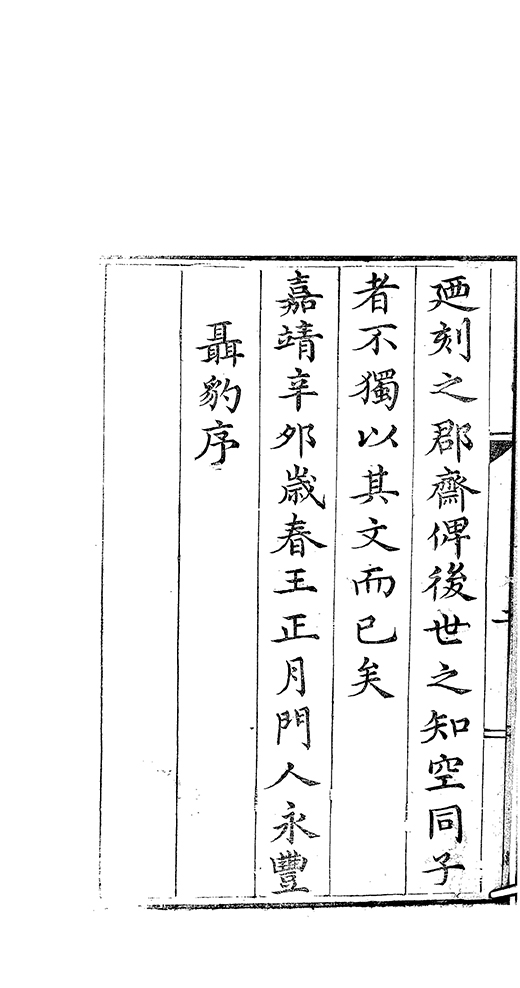 廼刻之郡齋俾後世之知空同子
者不獨以其文而已矣
嘉靖辛夘歲春王正月門人永豐
聶豹序
二